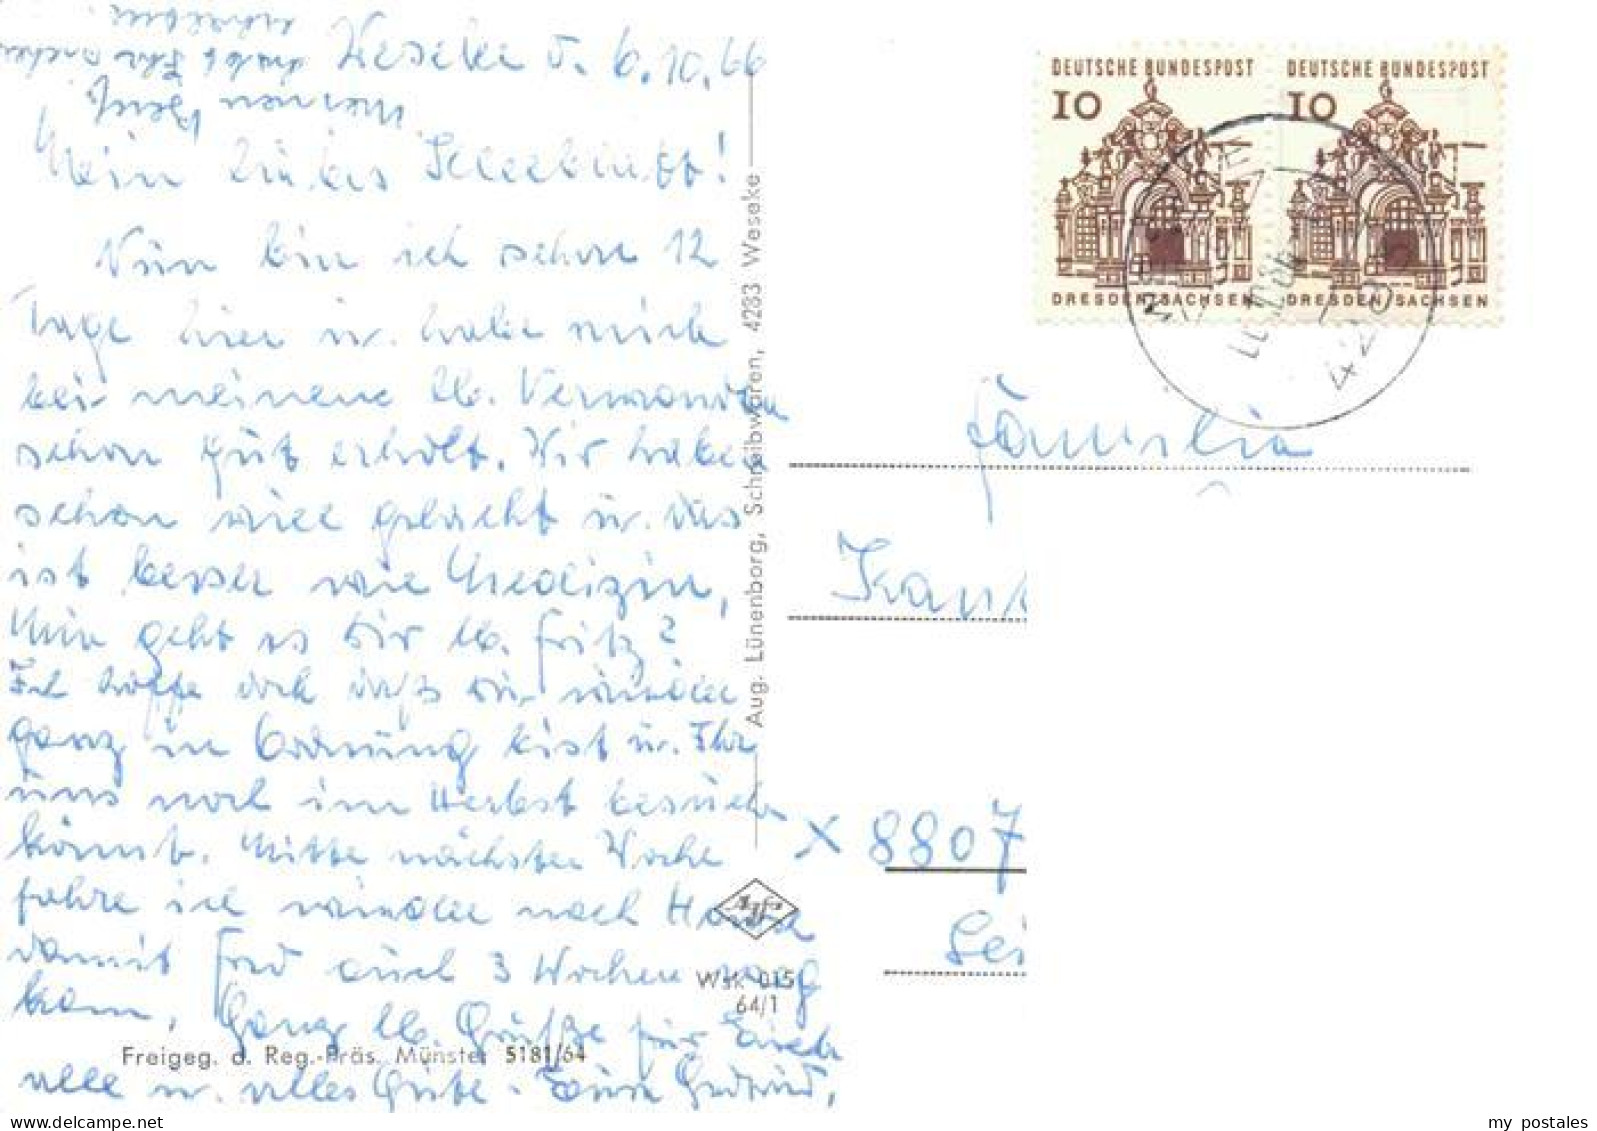 Weseke d. 6.10.66
Mein liebes Kleeblatt!
Nun bin ich schon 12
Tage hier u. habe mich
bei meinen lb. Verwandten
schon gut erholt. Wir haben
schon viel gelacht u. das
ist besser wie Medizin,
Nun geht es Dir lb. Fritz?
Ich hoffe doch daß Dir wieder
ganz in Ordnung bist u. Ihr
uns noch im Herbst besuchen
könnt. Mitte nächster Woche
fahre ich wieder nach Hause
damit Fred auch 3 Wochen weg
kann. Ganz lb. Grüße für Euch
alle u. alles Gute. Eure
meinen
habt Ihr
schreiben
Aug. Lünenborg, Schreibwaren, 4283 Weseke
Agfa
Wsk 015
64/1
Freigeg. d. Reg.-Präs. Münster 5181/64
DEUTSCHE BUNDESPOST
10
DRESDEN/SACHSEN
DEUTSCHE BUNDESPOST
10
DRESDEN/SACHSEN
Familie
X 8807
my postales